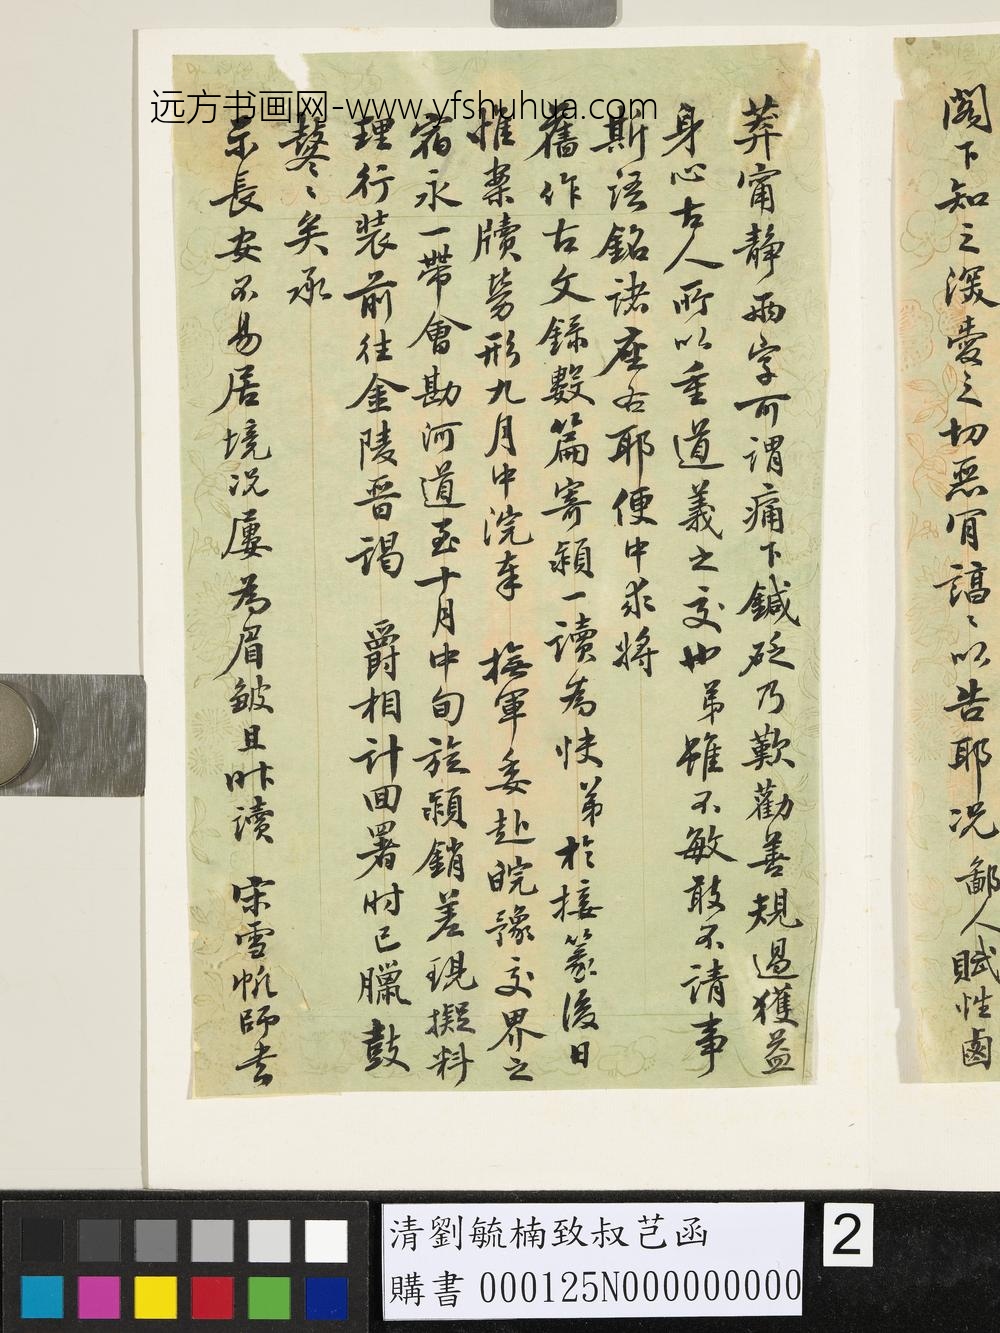 远方书画网-www.yfshuhua.com
閣下知之深愛之切惡肎謞〻以告耶況鄙人賦性鹵
莽甯靜兩字可謂痛下鍼砭乃歎勸善規過獲益
身心古人所以重道義之交也弟雖不敏敢不請事
斯語銘諸座右耶便中求將
舊作古文錄數篇寄潁一讀為快弟於接篆後日
惟案牘勞形九月中浣奉　撫軍委赴皖豫交界之
宿永一帶會勘河道至十月中旬旋潁銷差現擬料
理行裝前往金陵晉謁　爵相計回署時已臘鼓
鼕〻矣承
示長安不易居境況屢為眉皺且昨讀　宋雪帆師書
清劉毓楠致叔芑函
購書 000125N000000000
2